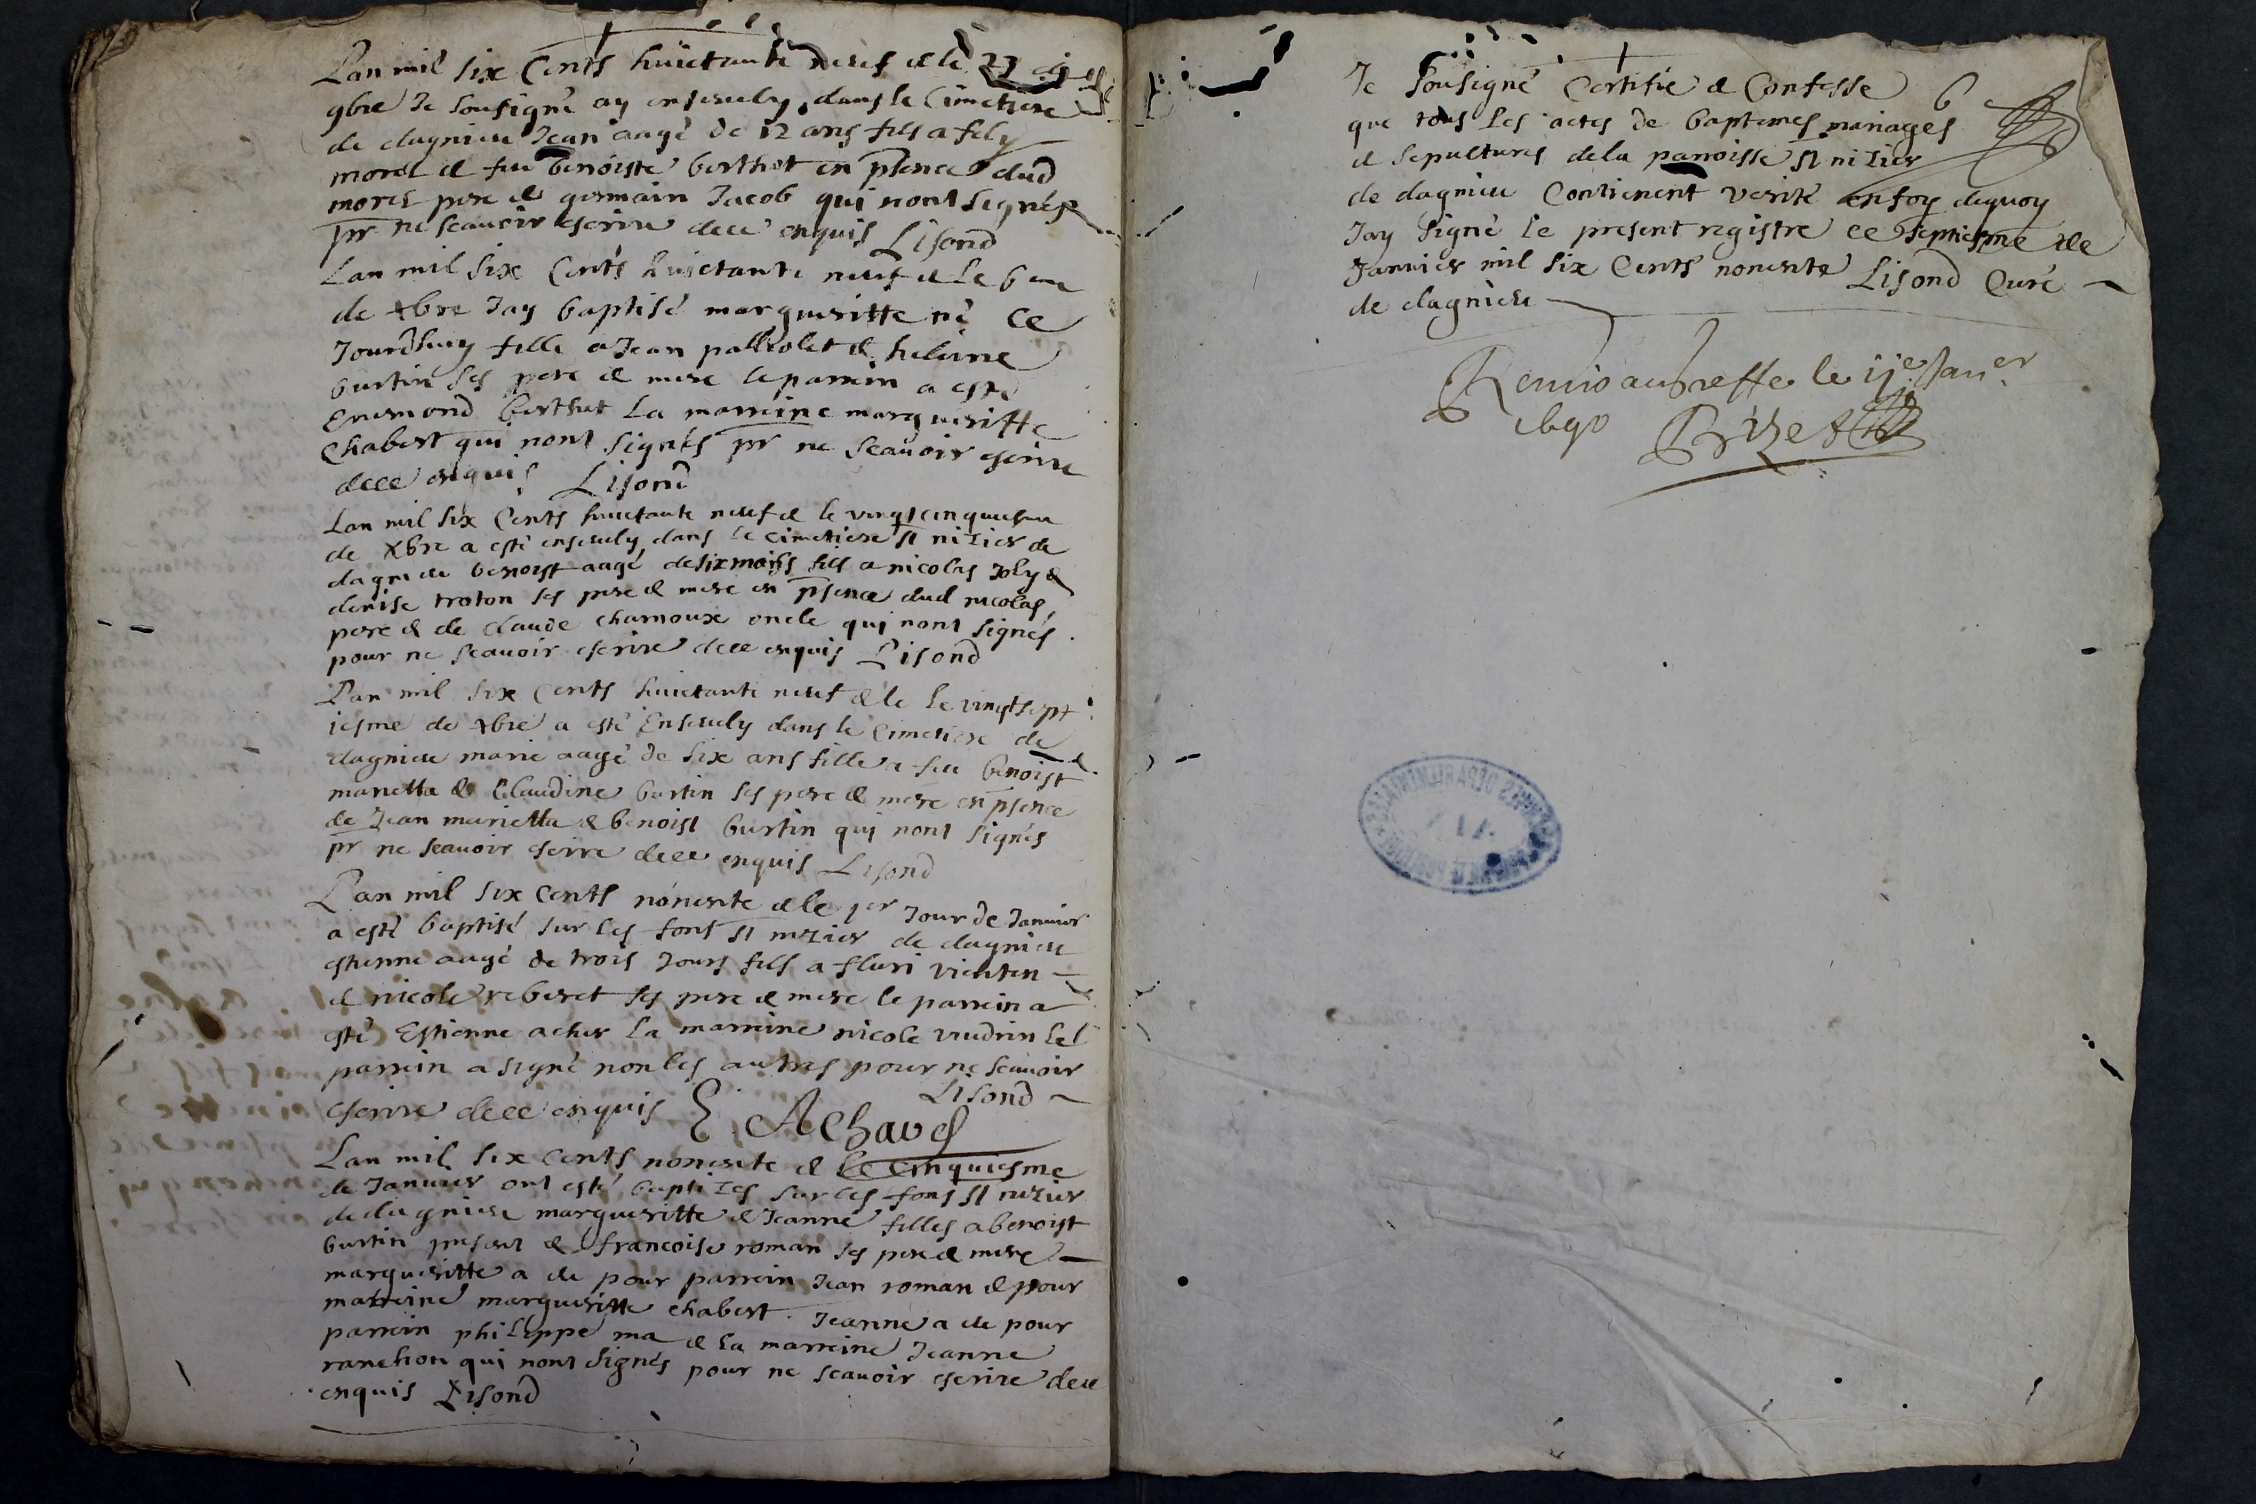 Lan mil six Cents huictante neuf & le 23
9bre Je sousigné ay ensevely dans le Cimetiere
de dagnieu Jean aagé de 12 ans fils a fely
morel & feu benoiste berthet en pñence dud
morel pere & germain Jacob qui nont signés
pr ne scavoir escrire dece enquis Lisond
Lan mil six Cents huictante neuf & le 6 me
de xbre Jay baptisé margueritte né ce
Jourdhuy fille a Jean palliolet & heleine
burtin ses pere & mere le parrein a esté
Enemond berthet La marreine margueritte
Chabert qui nont signés pr ne scavoir escrire
dece enquis Lisond
Lan mil six Cents huictante neuf & le vingt cinquiesme
de xbre a esté ensevely dans le cimetiere st nizier de
dagnieu benoist aagé de six mois fils a nicolas Joly &
denise troton ses pere & mere en pñsence dud nicolas
pere & de claude charnoux oncle qui nont signés
pour ne scavoir escrire dece enquis Lisond
Lan mil six Cents huictante neuf & le le vingt sept
iesme de xbre a esté Ensevely dans le Cimetiere de
dagnieu marie aagé de six ans fille a feu benoist
marietta & Claudine burtin ses pere & mere en pñsence
de Jean marietta & benoist burtin qui nont signés
pr ne scavoir escrire dece enquis Lisond
Lan mil six Cents nonente & le 1er Jour de Janvier
a esté baptisé sur les fons st nizier de dagnieu
estienne aagé de trois Jours fils a fluri
& nicole reberet ses pere & mere le parrein a
esté Estienne acher La marreine nicole vrudrin le
parrein a signé non les autres pour ne scavoir
escrire dece enquis E. Achard Lisond
Lan mil six Cents nonente & le Cinquiesme
de Janvier ont esté baptizes sur les fons st nizier
de dagnieu margueritte & Jeanne filles a benoist
burtin present & francoise roman ses pere & mere
margueritte a eu pour parrein Jean roman & pour
marreine margueritte chabert. Jeanne a eu pour
parrein philippe ma & la marreine Jeanne
ranchon qui nont signés pour ne scavoir escrire dece
enquis Lisond
Je sousigné Certifie & Confesse
que tous les actes de baptemes mariages
& sepultures de la parroisse st nizier
de dagnieu Contienent verité en foy dequoy
Jay signé le present registre ce septiesme de
Janvier mil six Cents nonente Lisond Curé
de dagnieu
Remis au greffe le Janer
1690